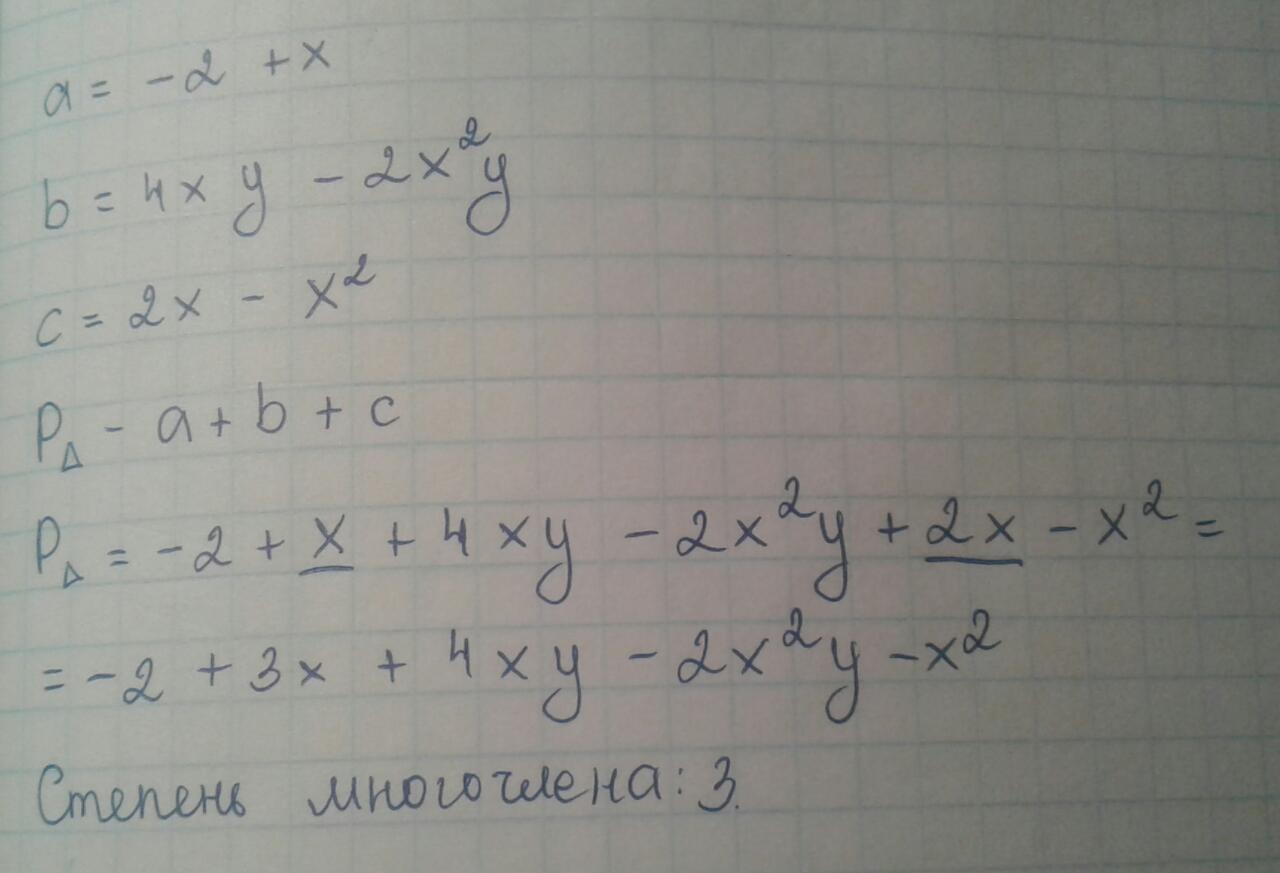 a = -2 + x
b = 4xy - 2x²y
c = 2x - x²
P△ - a + b + c
P△ = -2 + x + 4xy - 2x²y + 2x - x² =
= -2 + 3x + 4xy - 2x²y - x²
Степень многочлена: 3.